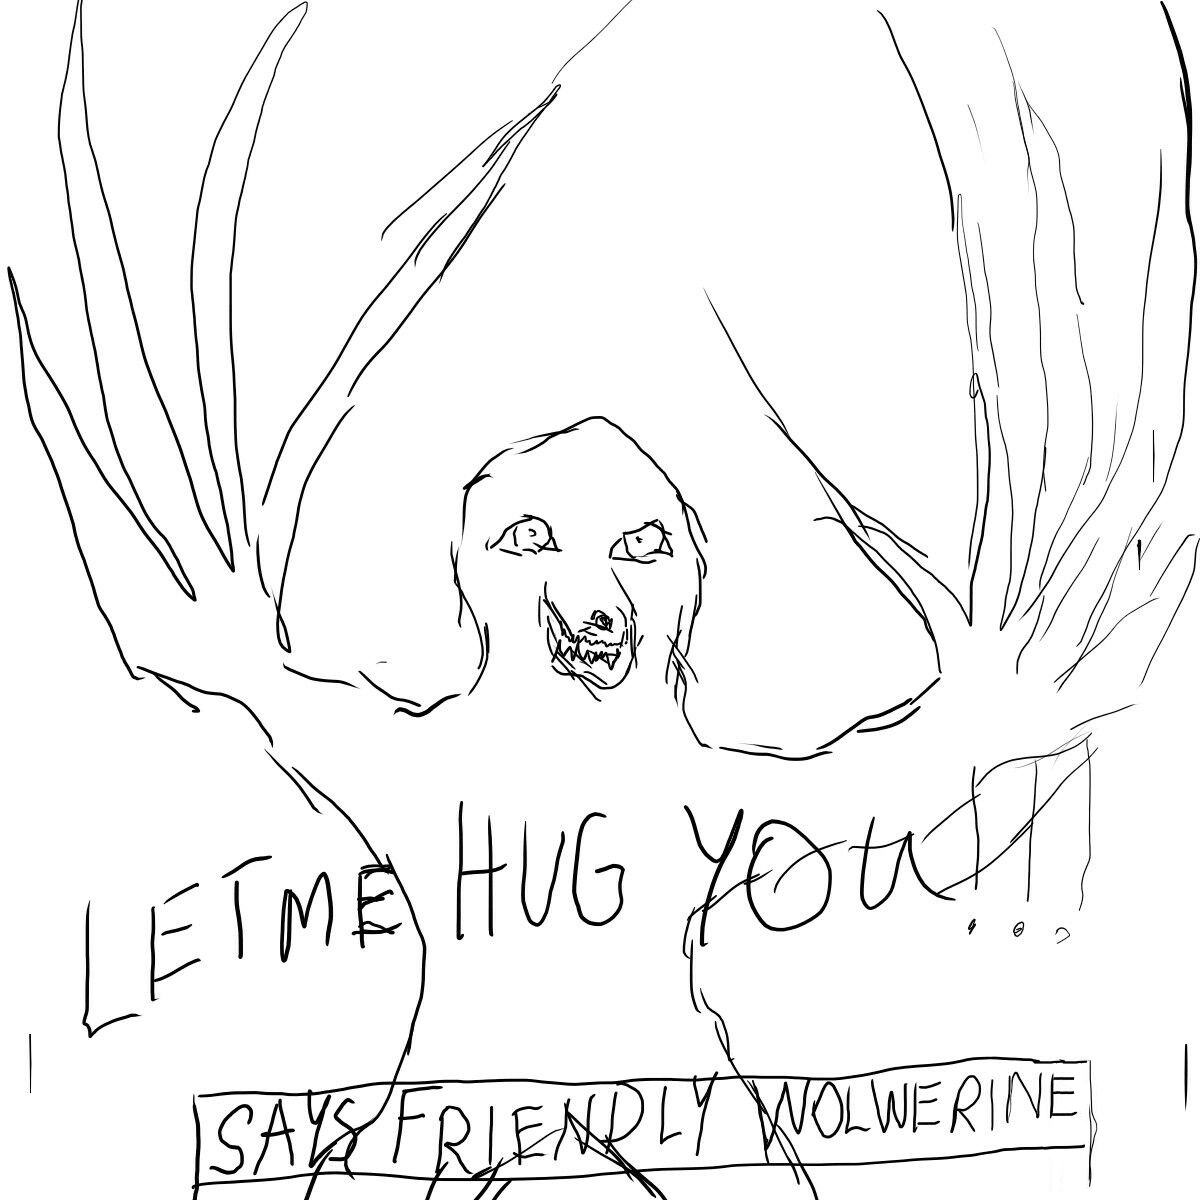 LET ME HUG YOU!!!
SAYS FRIENDLY WOLWERINE